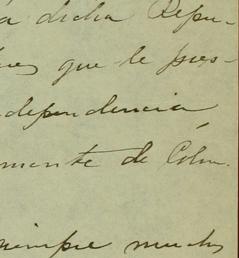 á dicha Repu-
que le pres-
dependencia
mente de Colom.
siempre mucho